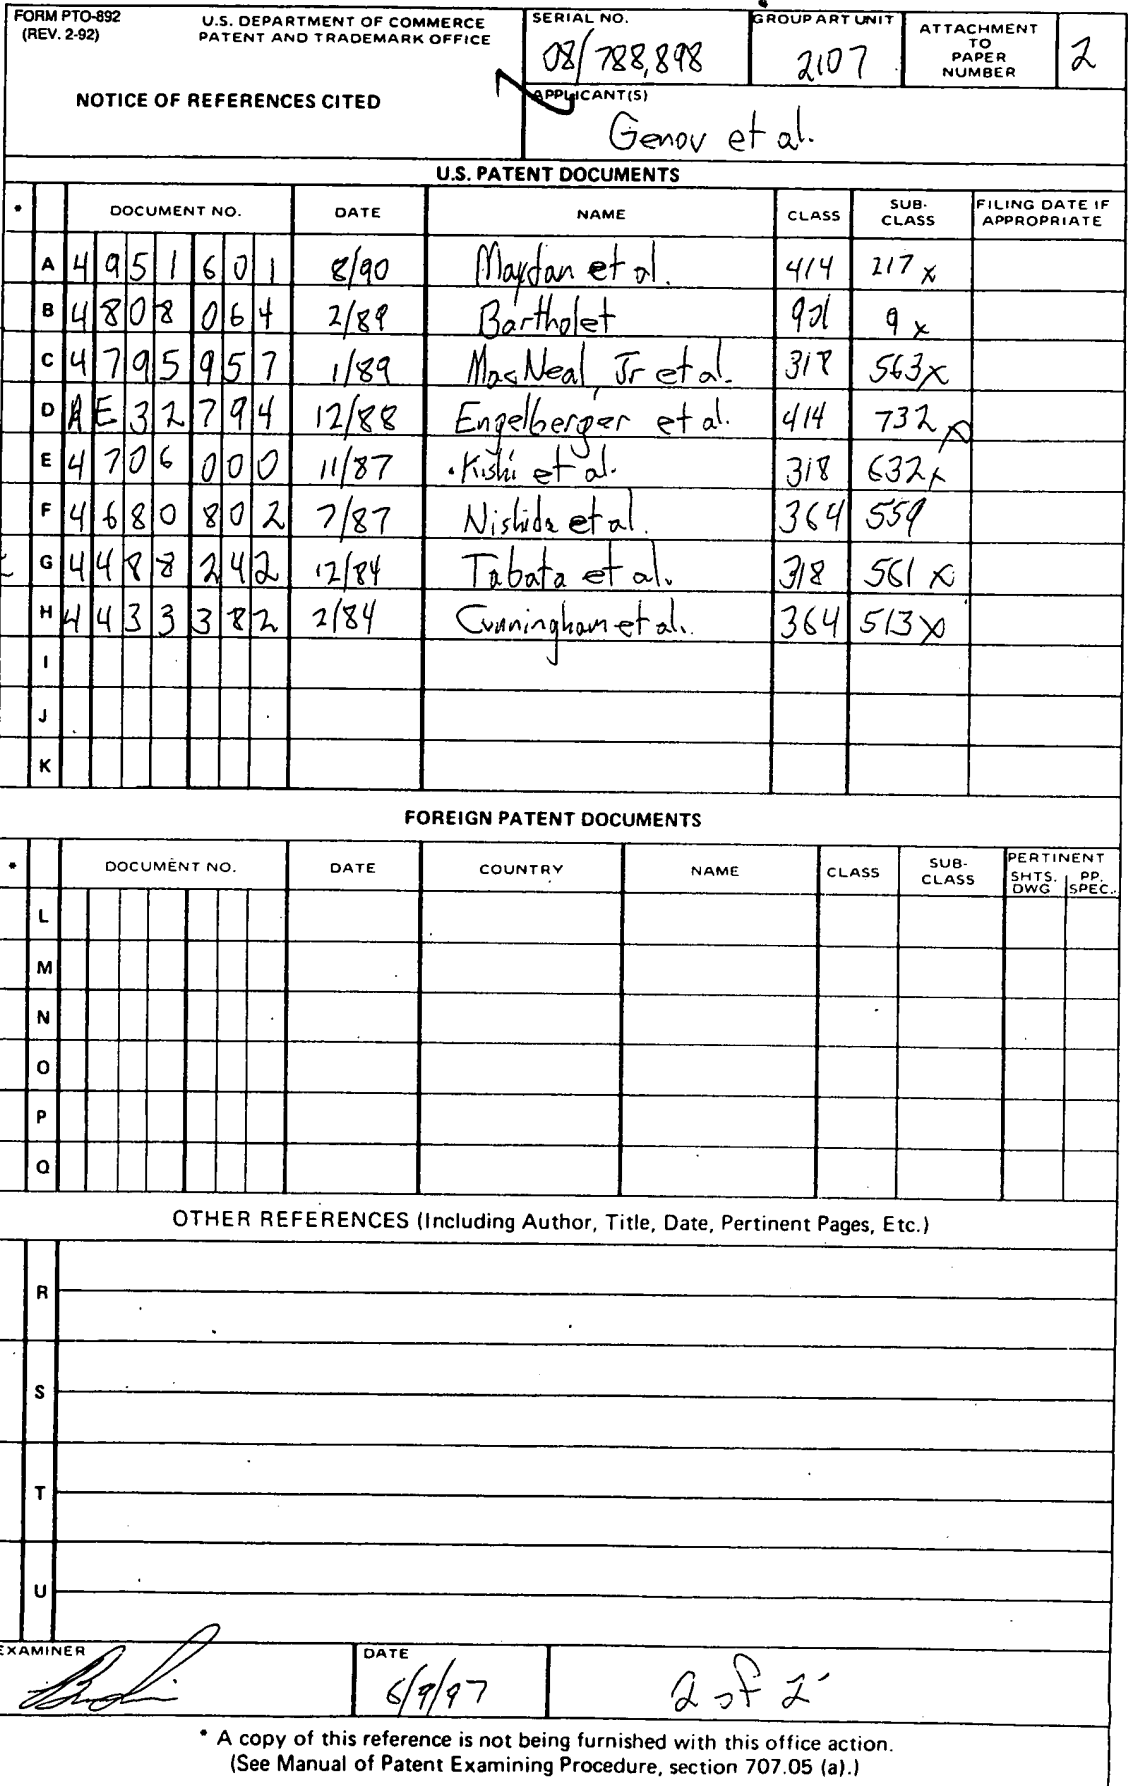 FORM PTO-892 U.S. DEPARTMENT OF COMMERCE
(REV. 2-92) PATENT AND TRADEMARK OFFICE
NOTICE OF REFERENCES CITED
SERIAL NO.
08/788,898
GROUP ART UNIT
2107
ATTACHMENT
TO
PAPER
NUMBER
2
APPLICANT(S)
Genov et al.
U.S. PATENT DOCUMENTS
* DOCUMENT NO. DATE NAME CLASS SUB-CLASS FILING DATE IF APPROPRIATE
A 4951601 8/90 Maydan et al. 414 217 x
B 4808064 2/89 Bartholet 901 9 x
C 4795957 1/89 MacNeal, Jr et al. 318 563 x
D RE32794 12/88 Engelberger et al. 414 732 x
E 4706000 11/87 Kishi et al. 318 632 x
F 4680802 7/87 Nishida et al. 364 559
G 4488242 12/84 Tabata et al. 318 561 x
H 4433382 2/84 Cunningham et al. 364 513 x
I
J
K
FOREIGN PATENT DOCUMENTS
* DOCUMENT NO. DATE COUNTRY NAME CLASS SUB-CLASS PERTINENT SHTS. DWG PP. SPEC.
L
M
N
O
P
Q
OTHER REFERENCES (Including Author, Title, Date, Pertinent Pages, Etc.)
R
S
T
U
EXAMINER
DATE
6/9/97
2 of 2
* A copy of this reference is not being furnished with this office action.
(See Manual of Patent Examining Procedure, section 707.05 (a).)